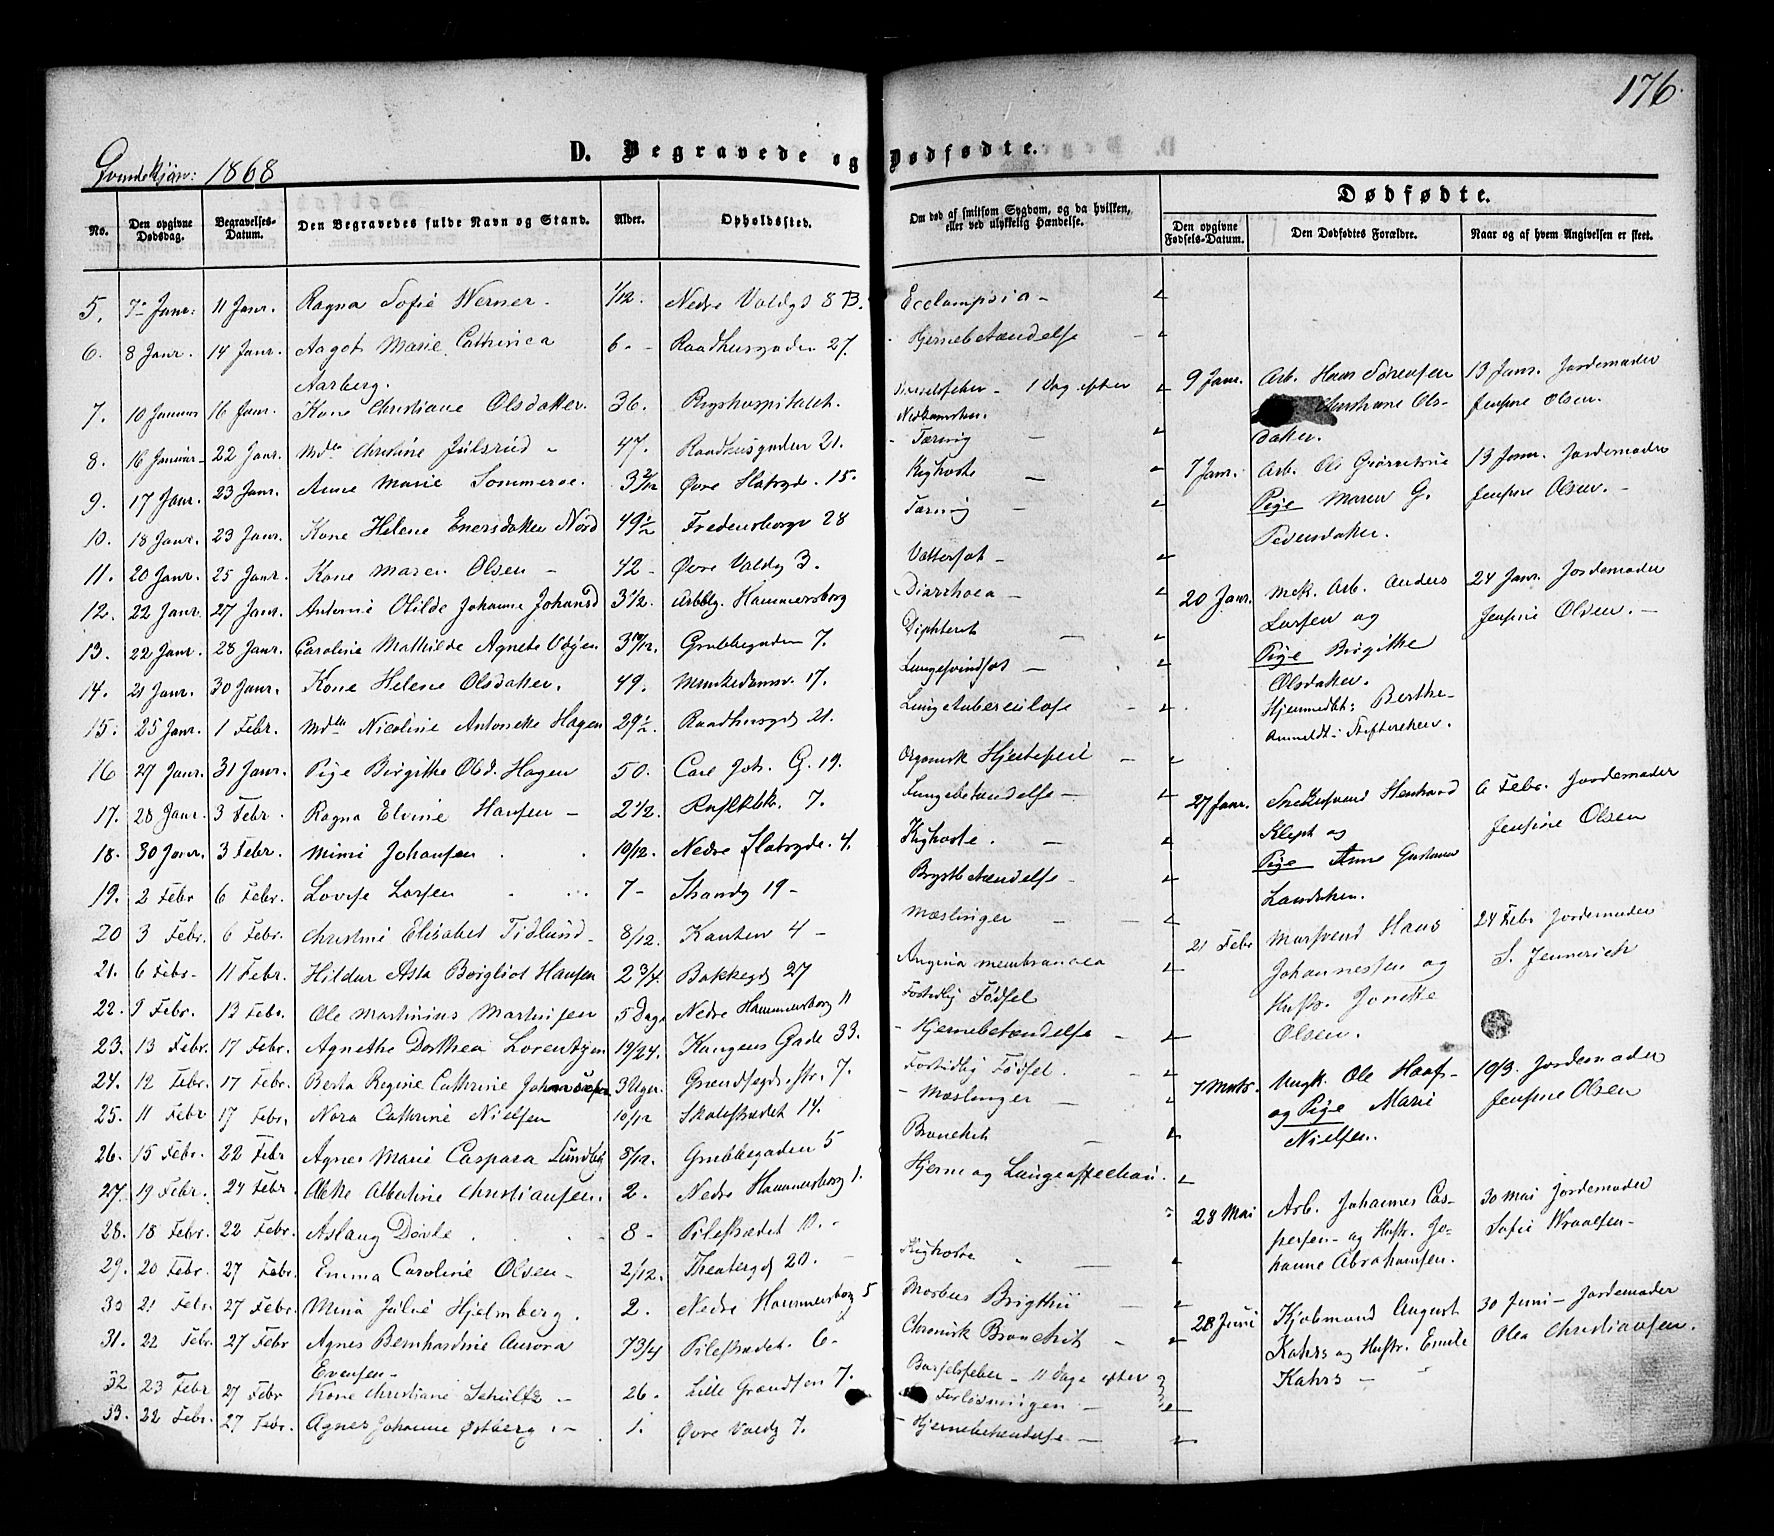 176.
D. Begravede og Dødfødte.
Qvindekjøn: 1868
No. Den opgivne Dødsdag. Begravelses-Datum. Den Begravedes fulde Navn og Stand. Alder. Opholdssted. Om død af smitsom Sygdom, og da hvilken, eller ved ulykkelig Hændelse.
Dødfødte.
Den opgivne Fødsels-Datum. Den Dødfødtes Forældre. Naar og af hvem Angivelsen er skeet.
5. 7 Janr. 11 Janr. Ragna Sofie Werner 1/12. Nedre Voldgd 8 B. Ecclampsia
6. 8 Janr. 14 Janr. Aagot Marie Cathrinea Aarberg. 6. Raadhusgaden 27. Hjernebetændelse
7. 10 Januar 16 Janr. Kone Christiane Olsdatter. 36. Rigshospitalet. Barselfeber 1 Dag efter Nedkomsten.
8. 16 Januar 22 Janr. Mdlle Christine Julsrud 47. Raadhusgaden 21. Tæring
9. 17 Janr. 23 Janr. Anne Marie Sommeroe. 3 2/12 Øvre Slotsgd. 15. Kighoste
10. 18 Janr. 23 Janr. Kone Helene Enersdatter Nord 49 1/2 Fredensborgv 28 Tæring
11. 20 Janr. 25 Janr. Kone Maren Olsen 42 Øvre Voldg 3. Vattersot
12. 22 Janr. 27 Janr. Antonie Otilde Johanne Johansd 3 1/2. Arbblg. Hammersborg Diarrhoea
13. 22 Janr. 28 Janr. Caroline Mathilde Agnete 3 10/12. Grubbegaden 7. Diphterit
14. 21 Janr. 30 Janr. Kone Helene Olsdatter. 49. Munkedamsv. 17. Lungesvindsot
15. 25 Janr. 1 Febr. Mdlle Nicoline Antonette Hagen 29 1/2 Raadhusgd 21. Lungetuberculose
16 27 Janr. 31 Janr. Pige Birgitte Olsd. Hagen 50. Carl Joh. G. 19. Organisk Hjertefeil
17. 28 Janr. 3 Febr. Ragna Elvine Hansen 2 1/2. 7. Lungebetændelse
18. 30 Janr. 3 Febr. Mimi Johansen 10/12. Nedre Slotsgde. 4. Kighoste.
19. 2 Febr 6 Febr. Lovise Larsen 7 Strandg 19 Brystbetændelse
20 3 Febr. 6 Febr. Christine Elisabet Tidlund 8/12. Kanten 4 Mæslinger
21. 6 Febr. 11 Febr. Hildur Asta Borgliot Hansen 2 3/4. Bakkegd 27 Angina membranacea
22. 9 Febr. 13 Febr. Ole Martinius Martinsen 5 Dage Nedre Hammersborg 11 Fortidlig Fødsel
23. 13 Febr. 17 Febr. Agnethe Dorthea Lorentzen 19/24. Kongens Gade 33. Hjernebetændelse
24. 12 Febr. 17 Febr. Berta Regine Cathrine Johansen 3 Uger. Grændsegd. 7. Fortidlig Fødsel.
25. 11 Febr 17 Febr. Nora Cathrine Nielsen 10/12 Skolestrædet 14. Mæslinger
26. 15 Febr. 22 Febr Agnes Marie Caspara Lundby 8/12. Grubbegaden 5 Bronchit
27. 19 Febr. 24 Febr Olette Albertine Christiansen. 2. Nedre Hammersborg 1. Hjerne og Lungeaffection.
28. 18 Febr. 22 Febr. Aslaug Døvle 8 Pilestrædet 10.
29. 20 Febr. 27 Febr. Emma Caroline Olsen 2/12. Theatergd 20. Kighoste
30 21 Febr 27 Febr. Mina Julie Hjelmberg. 2. Nedre Hammersborg 5 Morbus Brigthii
31. 22 Febr. 27 Febr Agnes Bernhardine Aurora Evensen 7 3/4 Pilestrædet. 6 Chronisk Bronchit
32. 23 Febr 27 Febr Kone Christiane Schultz 26. Lille Grændsen 7. Barselfeber 11 Dage efter Forløsningen
33. 22 Febr. 27 Febr. Agnes Johanne Østberg. 1. Øvre Voldg 7. Hjernebetændelse
9 Janr. Arb. Hans Sørensen Christiane Olsdatter. 13 Janr. Jordemoder Jensine Olsen.
7 Janr. Arb. Ole Pige Maren G. Pedersdatter. 13 Janr. Jordemoder Jensine Olsen.
20 Janr. Mek. Arb. Anders Larsen og Pige Birgitte Olsdatter. 24 Janr. Jordemoder Jensine Olsen.
Hjemmedbt: Berthe
Anmeldt i Stiftskirken.
27 Janr. Snekkersvend og Pige Anne 6 Febr. Jordemoder Jensine Olsen
21 Febr Mursvend Hans Johannessen og Hustr. Jonette Olsen. 24 Febr Jordemoder S. Jennerich
7 Marts. Ungk. Ole og Pige Marie Nielsen. 10/3. Jordemoder Jensine Olsen
28 Mai Arb. Johannes Caspersen og Hustr. Johanne Abrahamsen. 30 Mai Jordemoder Sofie Wraalsen
28 Juni Kjøbmand August Kahrs og Hustr. Emilie Kahrs 30 Juni Jordemoder Olea Christiansen.